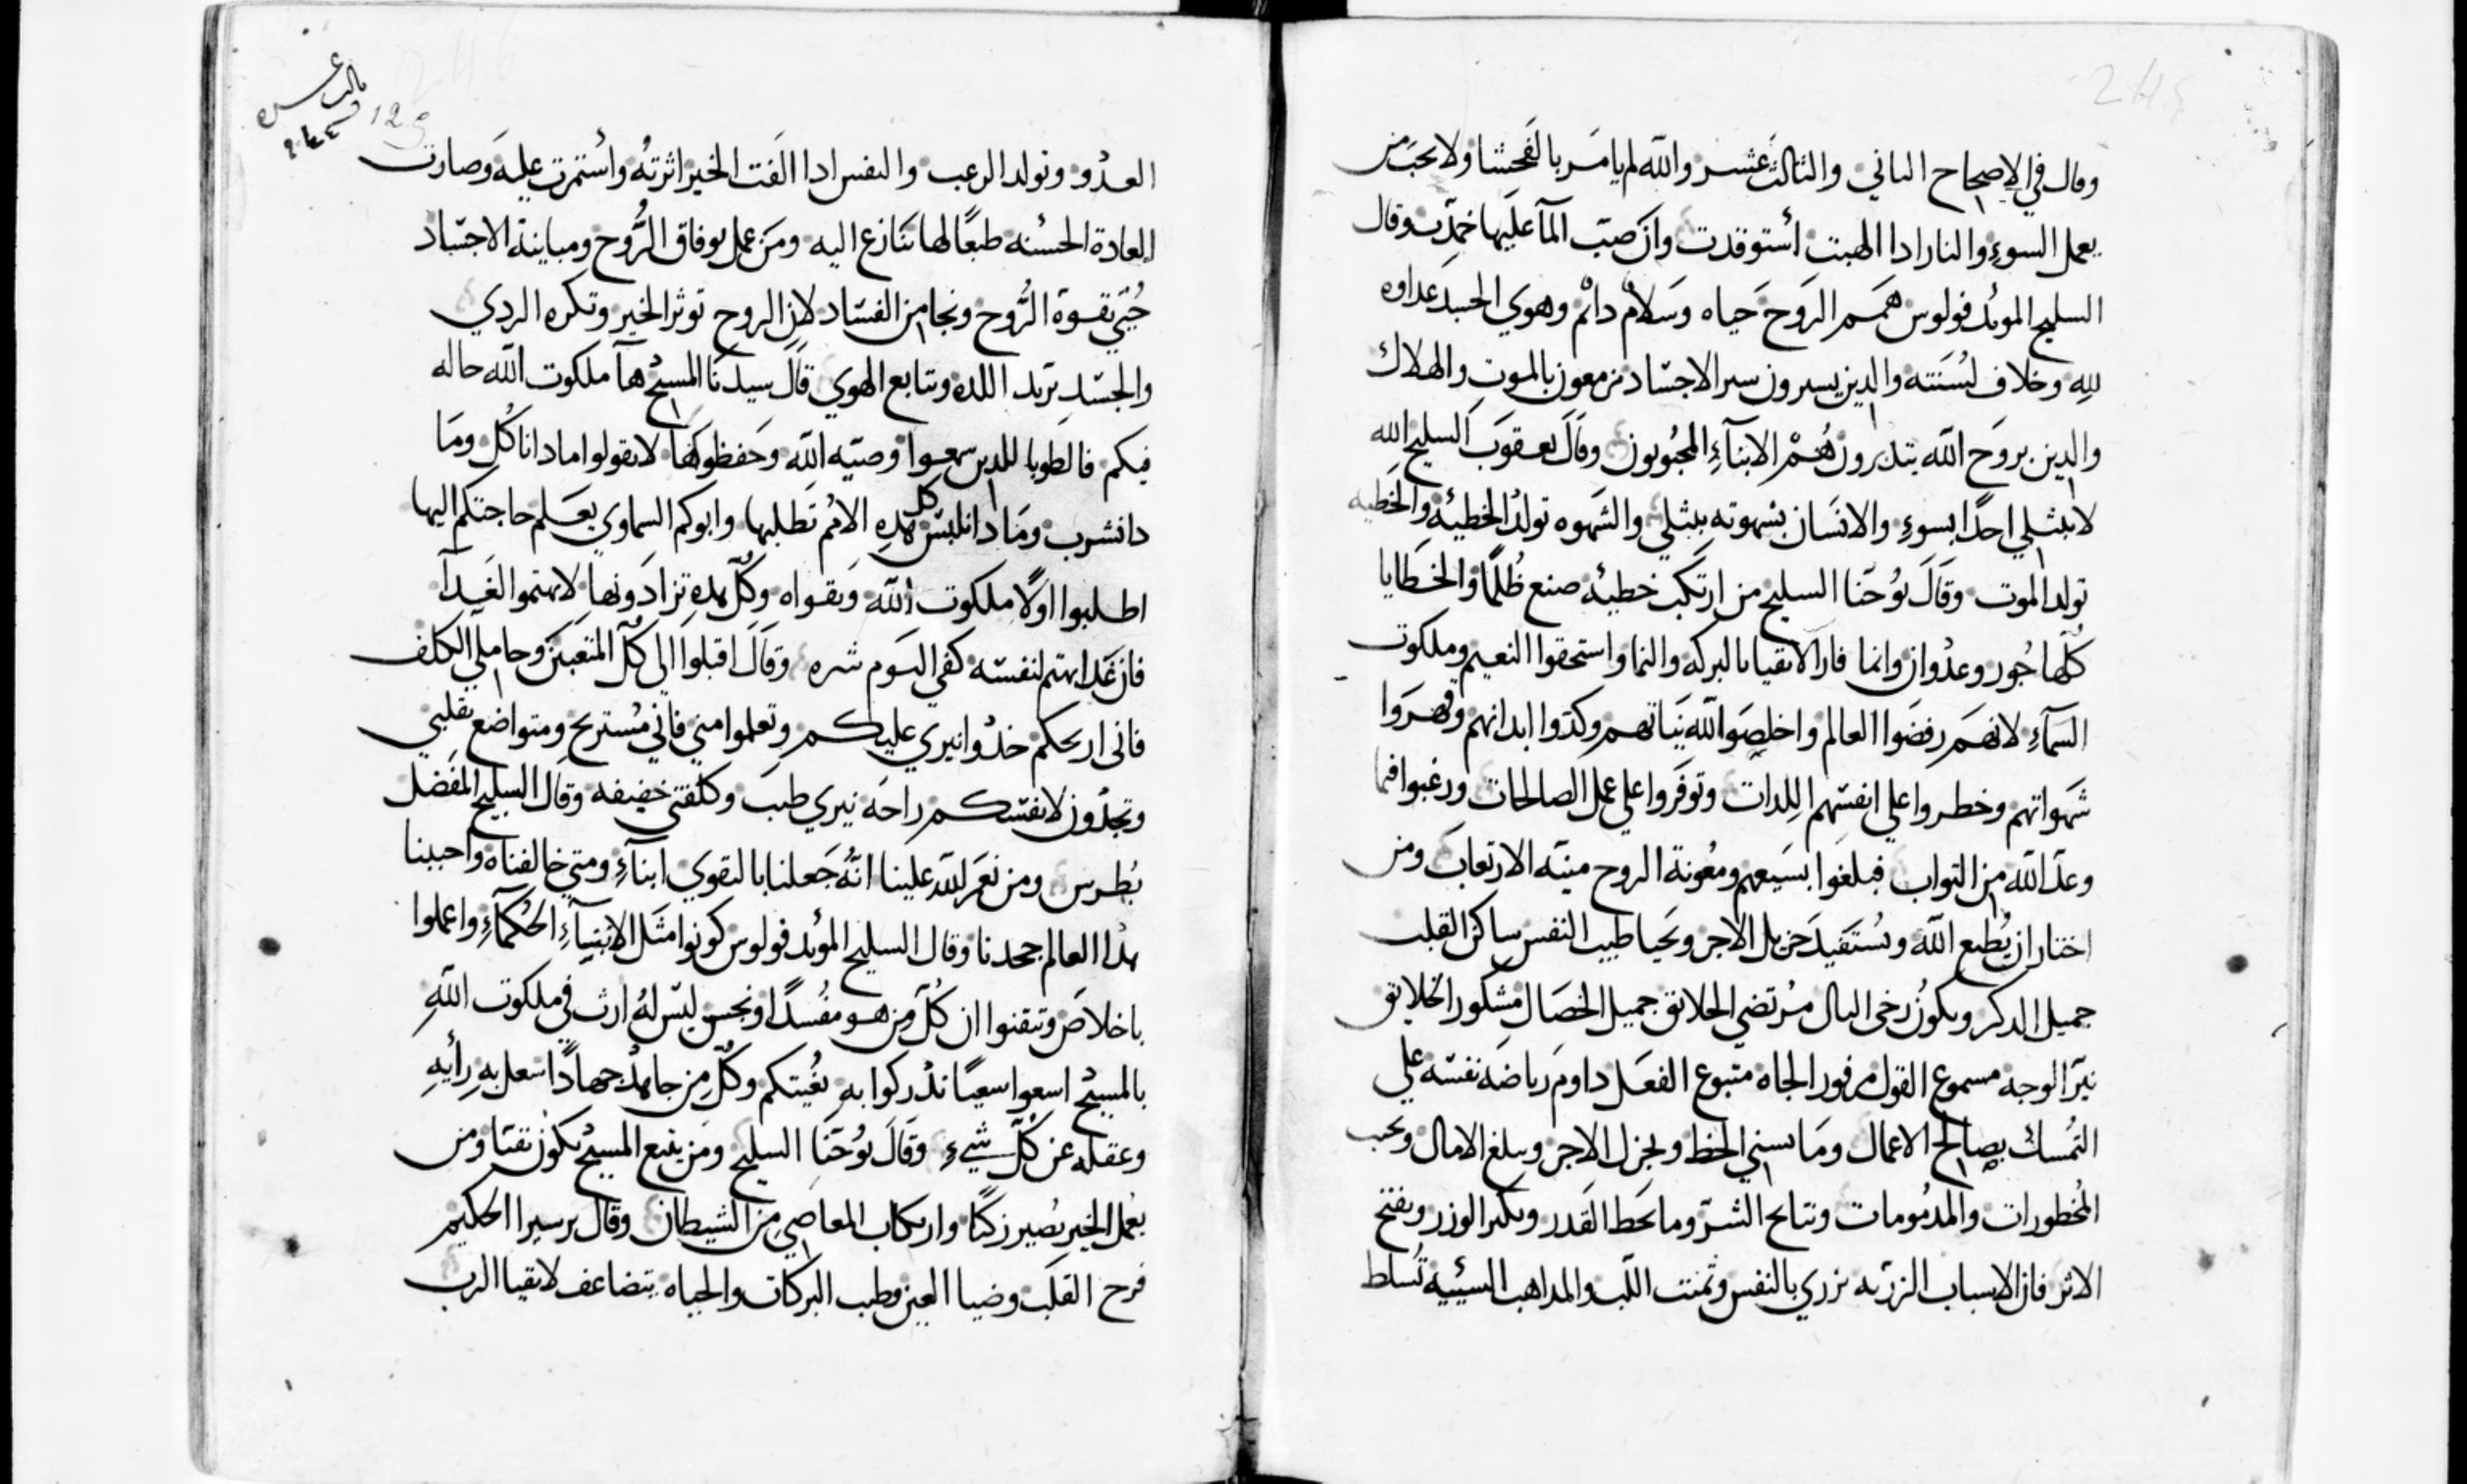 وقال في الاصحاح الثاني والثالث عشر والله لم يامر بالفحشا ولا يحب من
يعمل السوء والنار ادا الهبت استوقدت وان صبّ المآ عليها خمدت وقال
السليح الموئد فولوس همم الروح حياه وسلام دائم وهوي الحسد عداوه
لله وخلاف لسنته والدين يسيرون سير الاجساد مزمعون بالموت والهلاك
والدين بروح الله يتدبرون هُم الابناء المحبوبون وقال يعقوب السليح الله
لا يبتلي احدًا بسوء والانسان بشهوته يبتلي والشهوه تولد الخطيئه والخطيه
تولد الموت وقال يوحنا السليح من ارتكب خطيئه صنع ظلمًا والخطايا
كلّها جور وعدوان وانما فاز الاتقيا بالبركه والنما واستحقوا النعيم وملكوت
السمآء لانهم رفضوا العالم واخلصوا لله نياتهم وكدّوا ابدانهم وقهروا
شهواتهم وحظروا علي انفسهم اللدات وتوفروا علي عمل الصالحات ورغبوا فيما
وعد الله من التواب فبلغوا بسعيهم ومعونة الروح منية الارتعاب ومن
اختار ان يطيع الله ويستفيد جزيل الاجر ويحيا طيب النفس ساكن القلب
جميل الدكر ويكون رخي البال مرتضي الخلايق جميل الخصال مشكور الخلايق
نيّر الوجه مسموع القول موفور الجاه متبوع الفعل داوم رياضه نفسه علي
التمسك بصالح الاعمال وما يسني الحظ ويجزل الاجر ويبلغ الامال وتجنب
المحظورات والمدمومات ونتايح الشرّ وما يحط القدر ويكبر الوزر ويقبح
الاثر فان الاسباب الزريّه تزري بالنفس وتميت اللّب والمداهب السيئيه تسلط
العدو وتولد الرعب والنفس ادا الفت الخير اثرته واستمرت عليه وصارت
العادة الحسنه طبعًا لها تنازع اليه ومن عمل بوفاق الرّوح ومباينة الاجساد
حُيّي بقوة الرّوح ونجا من الفساد لان الروح توثر الخير وتكره الردي
والجسد تريد اللده وتتابع الهوي قال سيدنا المسيح هآ ملكوت الله حاله
فيكم فالطوبا للدين سمعوا وصيّه الله وحفظوكها لا تقولوا مادا ناكل وما
دا نشرب وما دا نلبس كل هده الامم تطلبها وابوكم السماوي يعلم حاجتكم اليها
اطلبوا اولًا ملكوت الله وتقواه وكلّ هده تزادونها لا تهتموا لغدآ
فان غدا يهتم لنفسه كفي اليوم شره وقال اقبلوا الي كلّ المتعبين وحاملي الكلف
فاني اريحكم خدوا نيري عليكم وتعلموا مني فاني مستريح ومتواضع بقلبي
وتجدون لانفسكم راحه نيري طيب وكلفتي خفيفه وقال السليح المفضل
بُطرس ومن نعم الله علينا انّه جعلنا بالتقوي ابنآء ومتي خالفناه واحببنا
هدا العالم جحدنا وقال السليح الموئد فولوس كونوا مثل الانبيآء الحكمآء واعملوا
باخلاص وتيقنوا ان كُلّ من هو مفسدًا ونجس ليس لهُ ارث في ملكوت الله
بالمسيح اسعوا سعيًا تدركوا به بغيتكم وكلّ من جاهد جهادًا شغل به رأيه
وعقله عن كلّ شيء وقال يوحنا السليح ومن يتبع المسيح يكون نقيّا ومن
يعمل الخير يصير زكيًا وارتكاب المعاصي من الشيطان وقال برسيرا الحكيم
فرح القلب وضيا العين وطيب البركات والحياه يتضاعف لاتقيا الرب